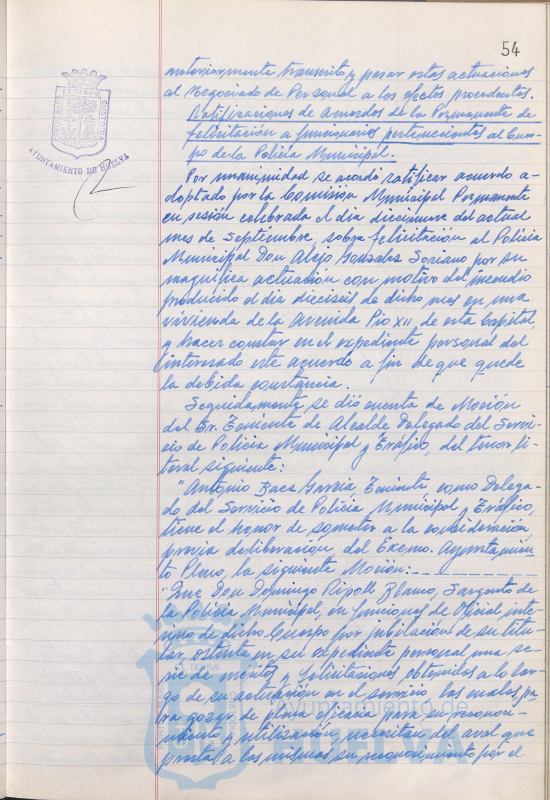 54
AYUNTAMIENTO DE HUELVA
anteriormente transcrito, y pasar estas actuaciones
al Negociado de Personal a los efectos procedentes.
Ratificaciones de Acuerdos de la Permanente de
felicitación a funcionarios pertenecientes al Cuer-
po de la Policía Municipal.
Por unanimidad se acordó ratificar acuerdo a-
doptado por la Comisión Municipal Permanente
en sesión celebrada el día diecinueve del actual
mes de Septiembre, sobre felicitación al Policía
Municipal Don Alejo Gonzalez Soriano por su
magnífica actuación con motivo del incendio
producido el día dieciseis de dicho mes en una
vivienda de la Avenida Pio XII de esta Capital,
y hacer constar en el expediente personal del
interesado este acuerdo a fin de que quede
la debida constancia.
Seguidamente se dió cuenta de Moción
del Sr. Teniente de Alcalde Delegado del Servi-
cio de Policía Municipal y Tráfico, del tenor li-
teral siguiente:
"Antonio Baca García Teniente como Delega-
do del Servicio de Policía Municipal y Tráfico,
tiene el honor de someter a la consideración
previa deliberación del Excmo. Ayuntamien
to Pleno, la siguiente Moción:
"Que Don Domingo Ripoll Blanco, Sargento de
la Policía Municipal, en funciones de Oficial inte-
rino de dicho Cuerpo por jubilación de su titu-
lar, ostenta en su expediente personal una se-
rie de méritos y felicitaciones obtenidos a lo lar-
go de su actuación en el servicio los cuales, pa
ra gozar de plena eficacia para su reconoci-
miento y utilización necesitan del aval que
presta a los mismos su reconocimiento por el
Ayuntamiento de
HUELVA